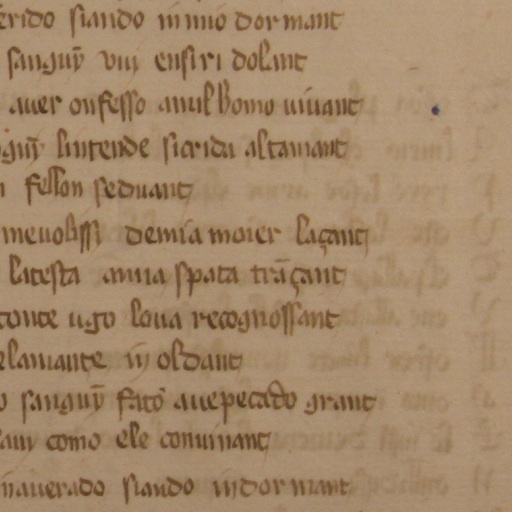 erido siando in mio dormant
sanguỹ vui ensiri dolant
auer onfesso anul homo uiuant
guỹ lintende sicrida altamant
fellon seduant
meuolissi demia moier laçant
latesta anna spata trãçant
conte ugo loua recognossant
elamante in oldant
sanguỹ fato auepecado grant
como ele conuinant
nauerado siando indormant